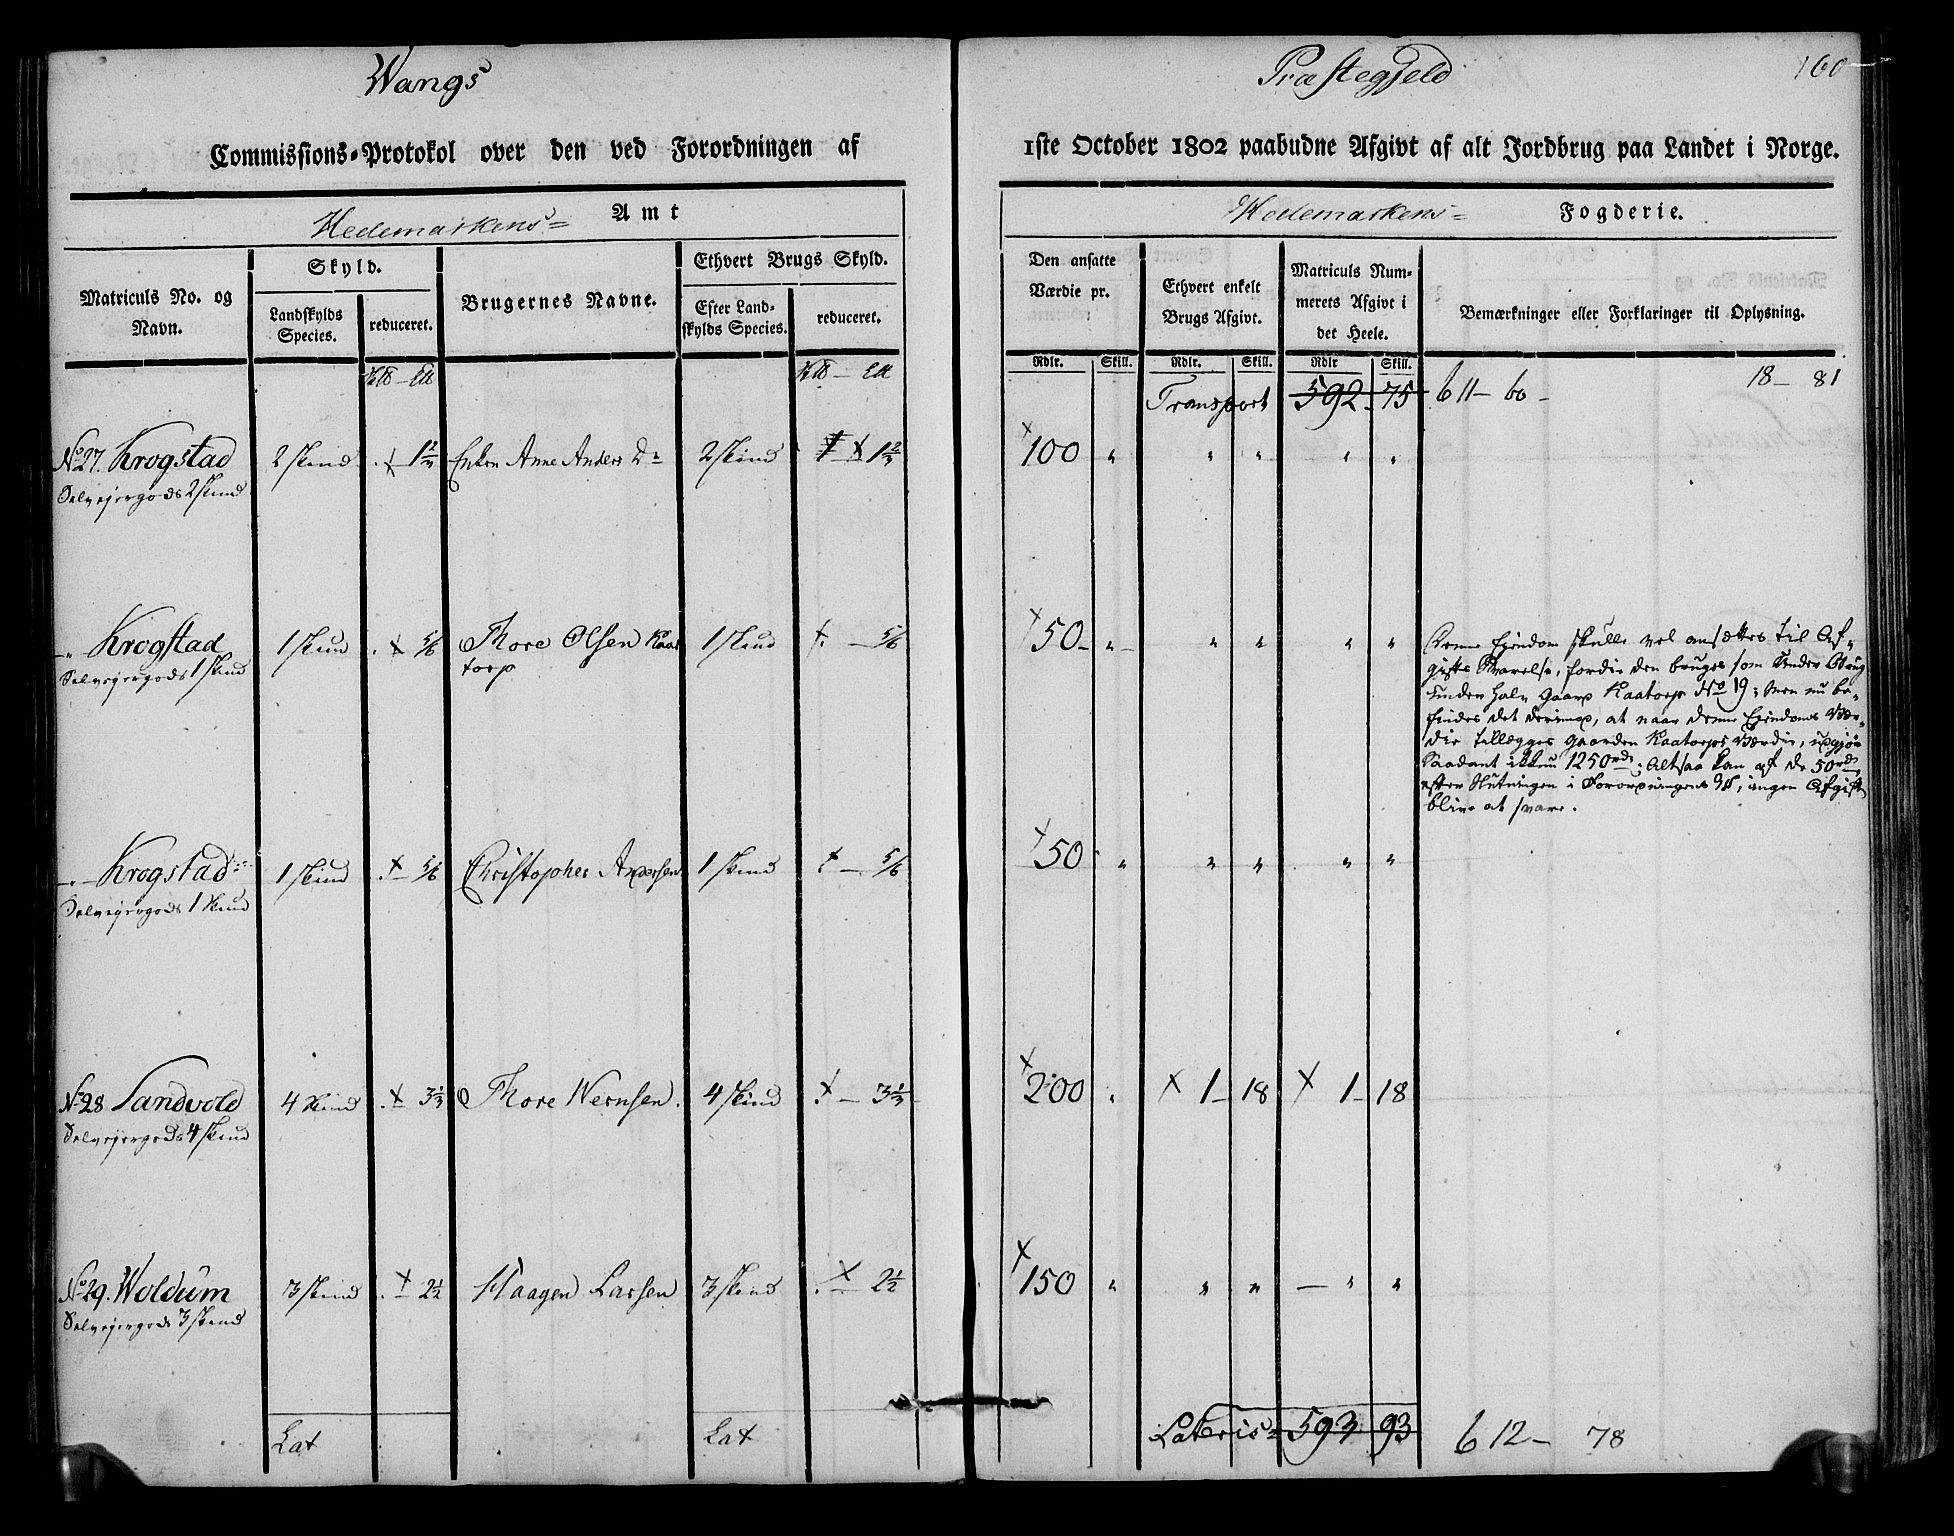 Wangs Præstegjeld 160
Commissions-Protokol over den ved Forordningen af 1ste October 1802 paabudne Afgivt af alt Jordbrug paa Landet i Norge.
Hedemarkens Amt
Hedemarkens Fogderie.
Matriculs No. og Navn.
Skyld.
Landskylds Species.
reduceret.
Brugernes Navne.
Ethvert Brugs Skyld.
Efter Landskylds Species.
reduceret.
Den ansatte Værdie pr.
Ethvert enkelt Brugs Afgivt.
Matriculs Nummerets Afgivt i det Heele.
Bemærkninger eller Forklaringer til Oplysning.
Rdlr. Skill. Rdlr. Skill. Rdlr Skill.
Transport 592 - 75 611 - 60 - 18 - 81
No 27. Krogstad 2 Skind 1 2/3 Enken Anne Anders Dr 2 Skind 1 2/3 100 " " " " "
Selvejergods 2 Skind
" Krogstad 1 Skind 5/6 Thore Olsen Kaatorp 1 Skind 5/6 50 - " - " " " "
Selvejergods 1 Skind
Denne Ejendom skulle vel ansættes til Afgifts Svarelse, fordie den bruges som Under Brug
under halv Gaard Kaatorp No 19; Men nu befindes
det derimod, at naar denne Ejendoms Værdie
tillægges Gaarden Kaatorps Værdie, udgjør
Saadant ikkun 1250 rd; Altsaa kan af de 50 rd
efter Slutningen i Forordningens, ingen Afgift
blive at svare.
" Krogstad 1 Skind 5/6 Christopher Andersen 1 Skind 5/6 50 " " " " "
Selvejergods 1 Skind
No 28 Sandvold 4 Skind 3 1/3 Thore Wernsen. 4 Skind 3 1/3 200 " 1 - 18 1 - 18
Selvejergods 4 Skind
No 29. Woldum 3 Skind 2 1/2 Haagen Larsen 3 Skind 2 1/2 150 " " " " "
Selvejergods 3 Skind
Lat Lat Lateris 593 93 612 - 78